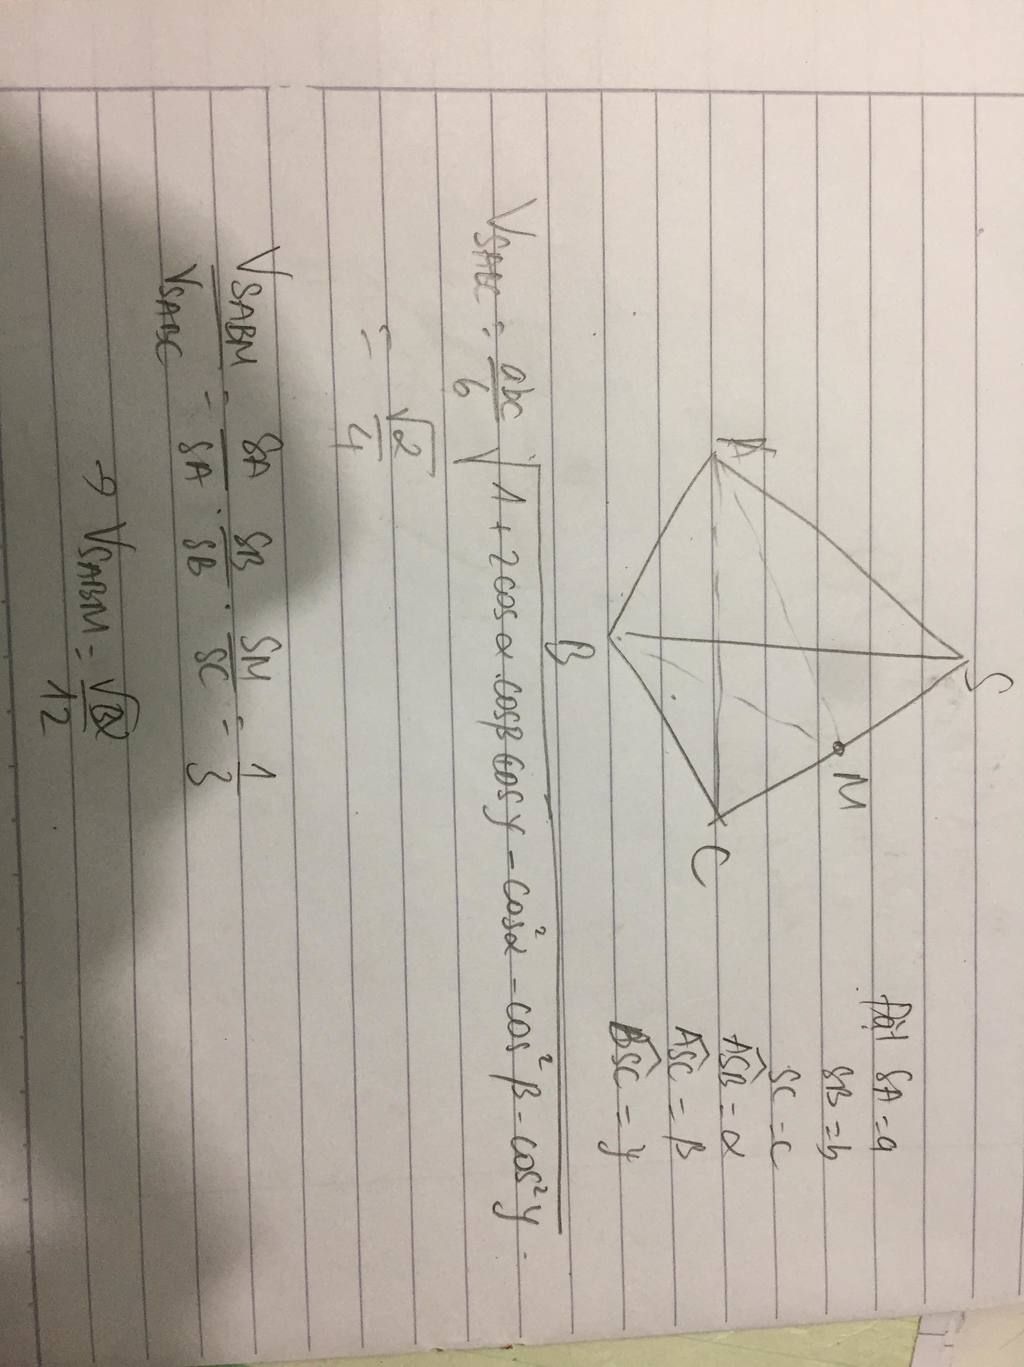 S
A
M
C
B
Đặt SA = a
SB = b
SC = c
ASB = α
ASC = β
BSC = γ
V_SABC = abc/6 √(1 + 2cosα.cosβ cosγ - cos²α - cos²β - cos²γ)
= √2/4
V_SABM/V_SABC = SA/SA . SB/SB . SM/SC = 1/3
→ V_SABM = √2/12